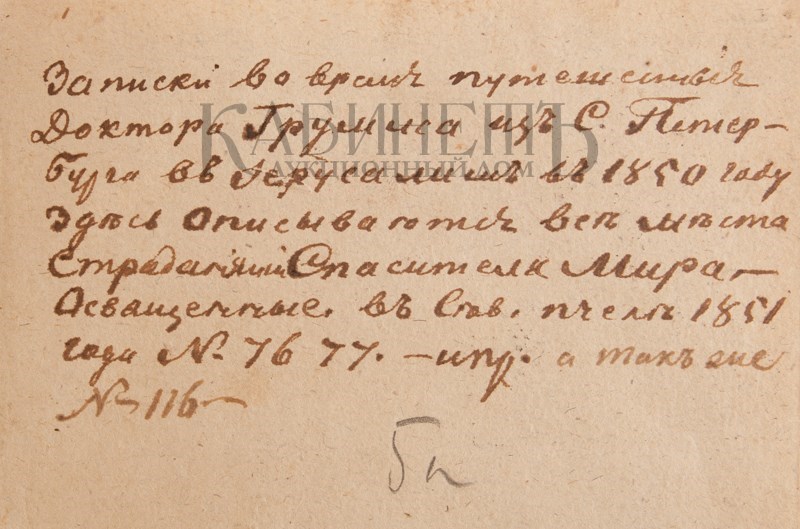 Записки во время путешествия
Доктора Грумма изъ С. Петер-
бурга въ Іерусалимъ въ 1850 году
Здѣсь описываются всѣ мѣста
Страданіями Спасителя Мира—
Освященные. въ Сѣв. пчелѣ 1851
года № 76 77. — и пр. а такъ же
№ 116—
5 к
КАБИНЕТЪ
АУКЦИОННЫЙ ДОМ